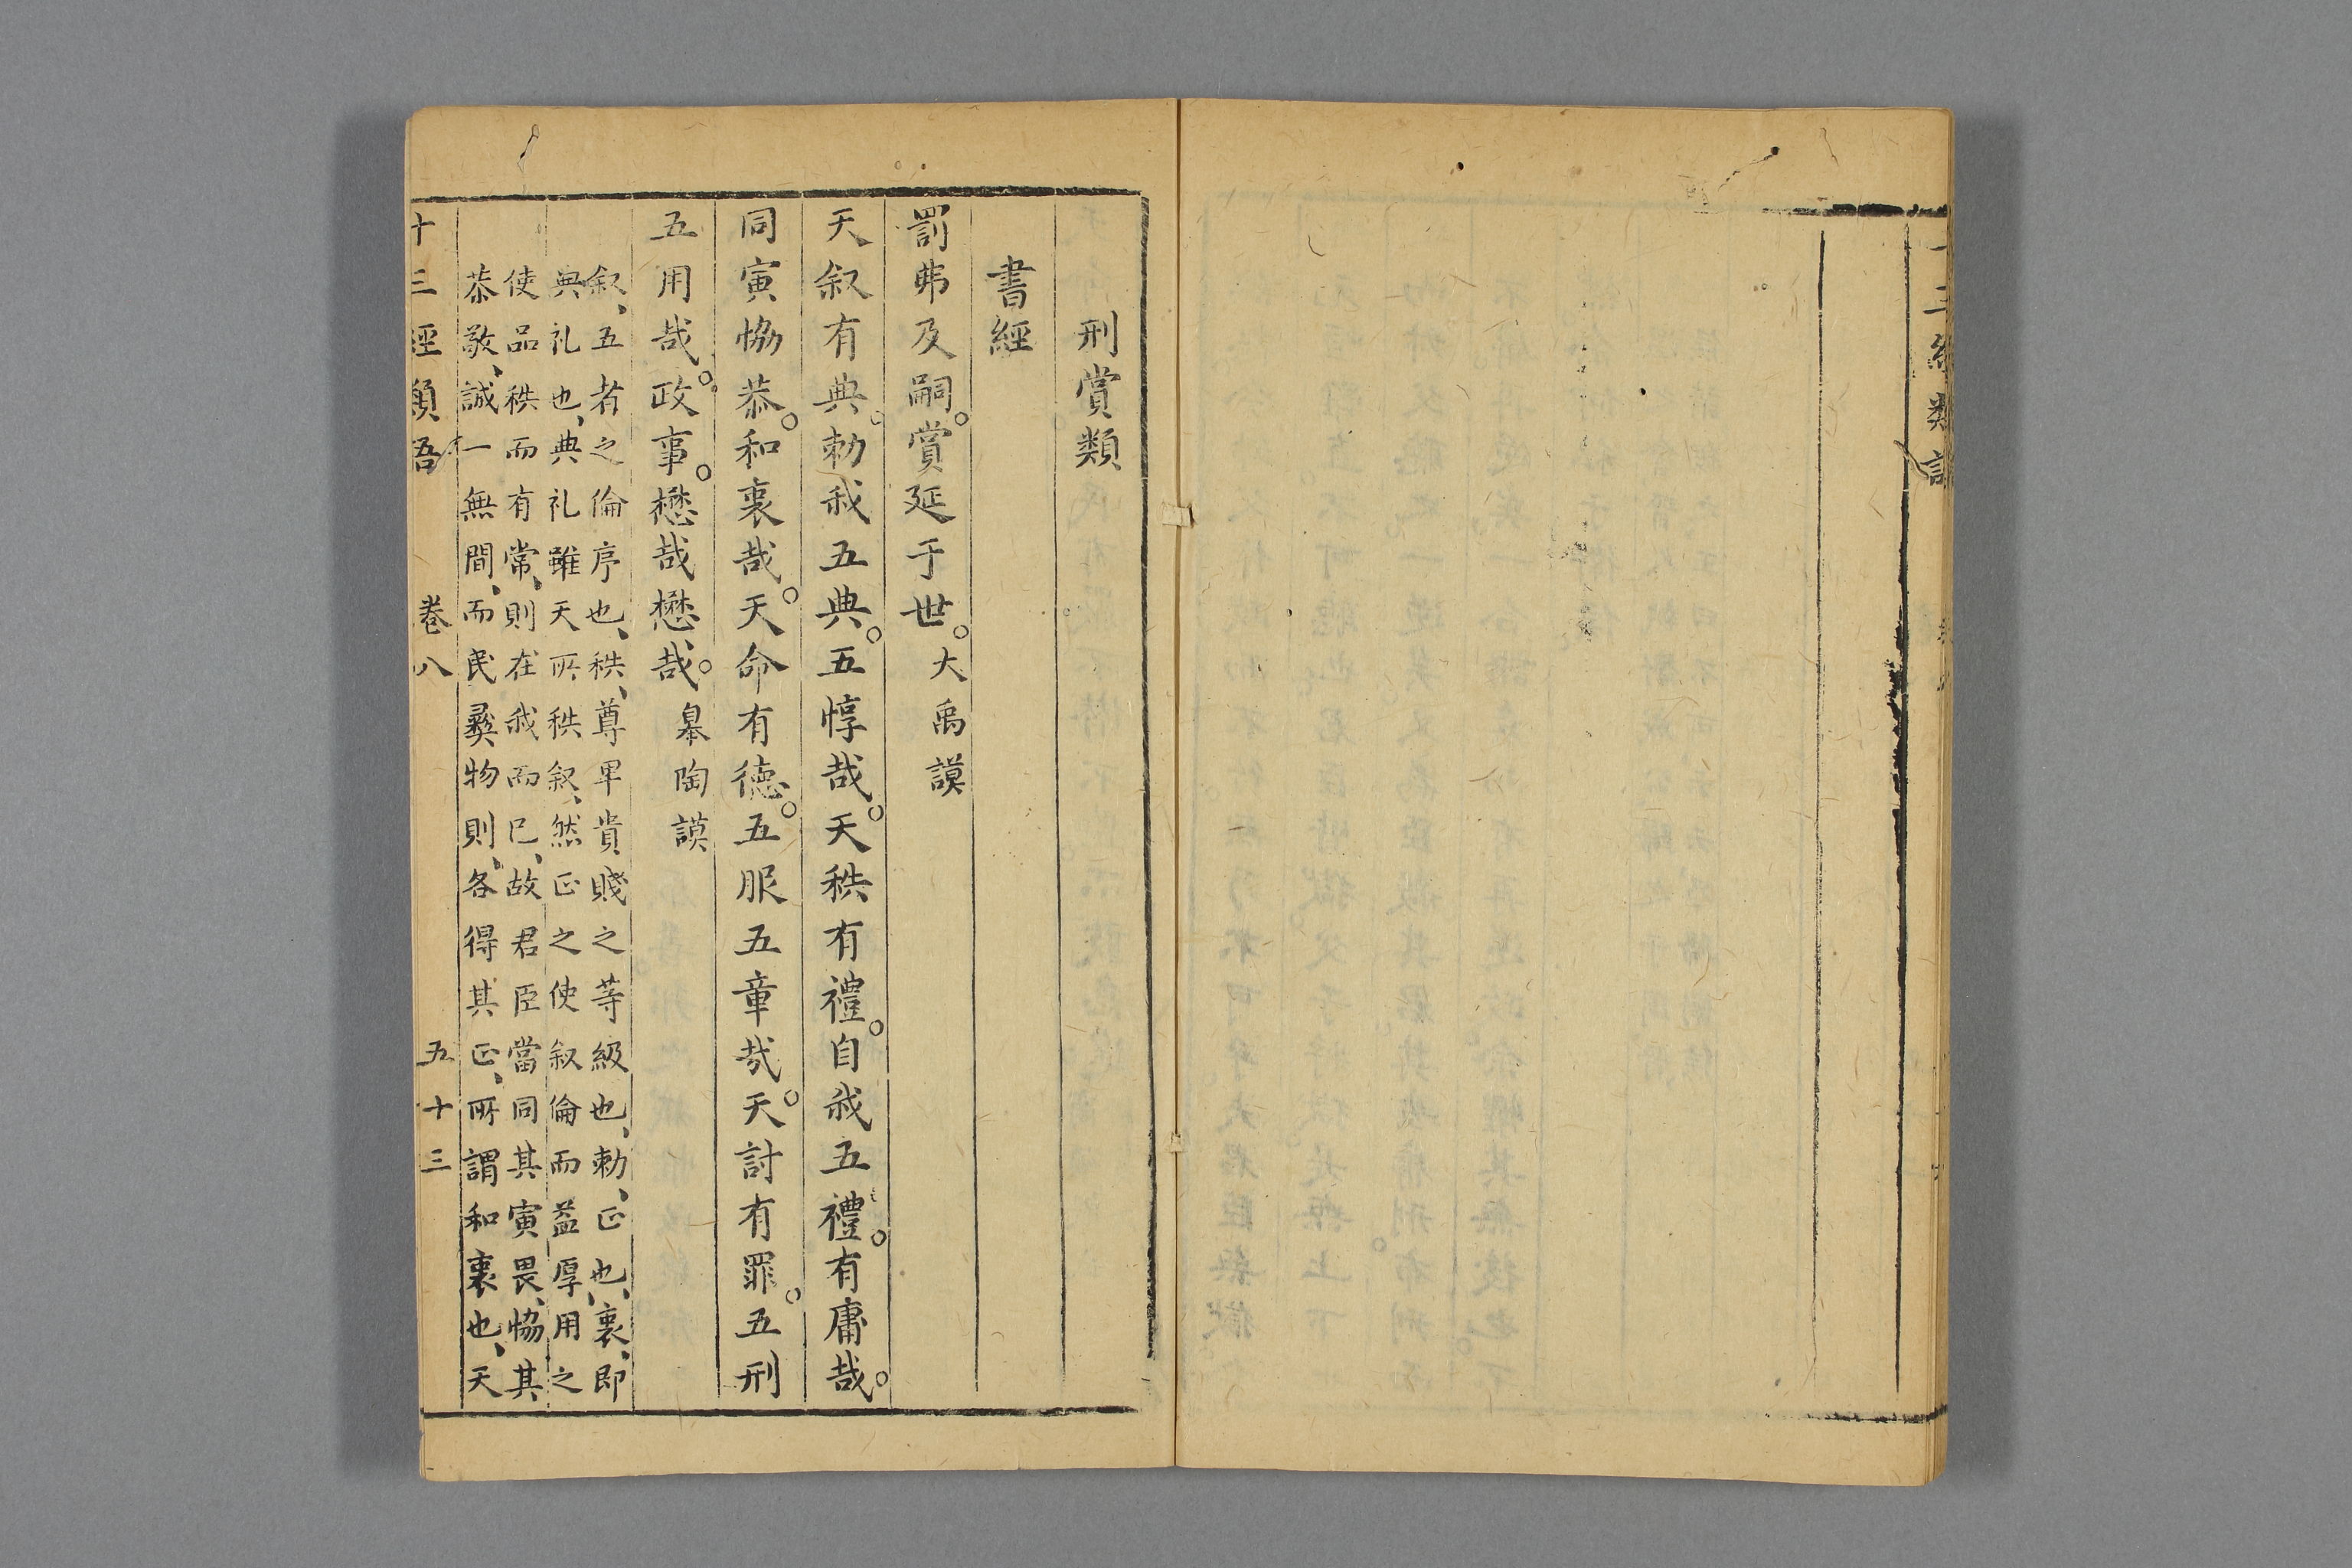 十三經類語
刑賞類
書經
罰弗及嗣。賞延于世。大禹謨
天叙有典。勅我五典。五惇哉。天秩有禮。自我五禮。有庸哉。
同寅恊恭。和衷哉。天命有德。五服五章哉。天討有罪。五刑
五用哉。政事。懋哉懋哉。皐陶謨
叙、五者之倫序也、秩、尊卑貴賤之等級也、勅、正也、衷、即
典礼也、典礼雖天所秩叙、然正之使叙倫而益厚用之
使品秩而有常、則在我而已、故君臣當同其寅畏、恊其
恭敬、誠一無間、而民彛物則、各得其正、所謂和衷也、天
十三經類語 卷八 五十三